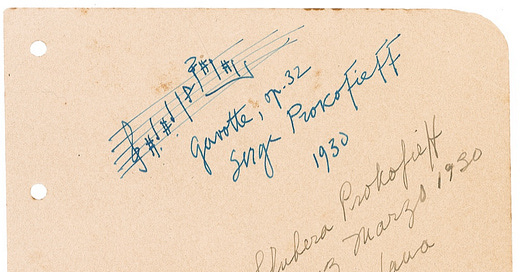 Gavotte, op. 32
Serge Prokofieff
1930
Prokofieff
Marzo 1930